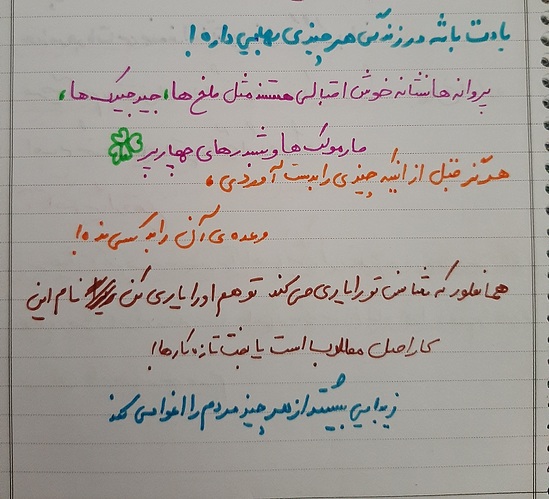 یادت باشه در زندگی هر چیزی بهایی داره!
پروانه ها نشانه خوش اقبالی هستند مثل ملخ ها، جیرجیرک ها،
مارمولک ها و شبدرهای چهارپر
هرگز قبل از اینکه چیزی را بدست آوردی،
وعده ی آن را به کسی نده!
همانطور که شانس تو را یاری می کند تو هم او را یاری کن نام این
کار اصل مطلوب است یا بخت تازه کارها!
زیبایی بیشتر از هر چیز مردم را اغوا می کند